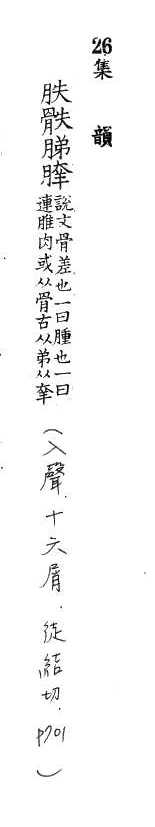 26 集 韻
胅
說文骨差也一曰腫也一曰
連脽肉或从骨古从弟从
(入聲.十六屑.徒結切.p701)